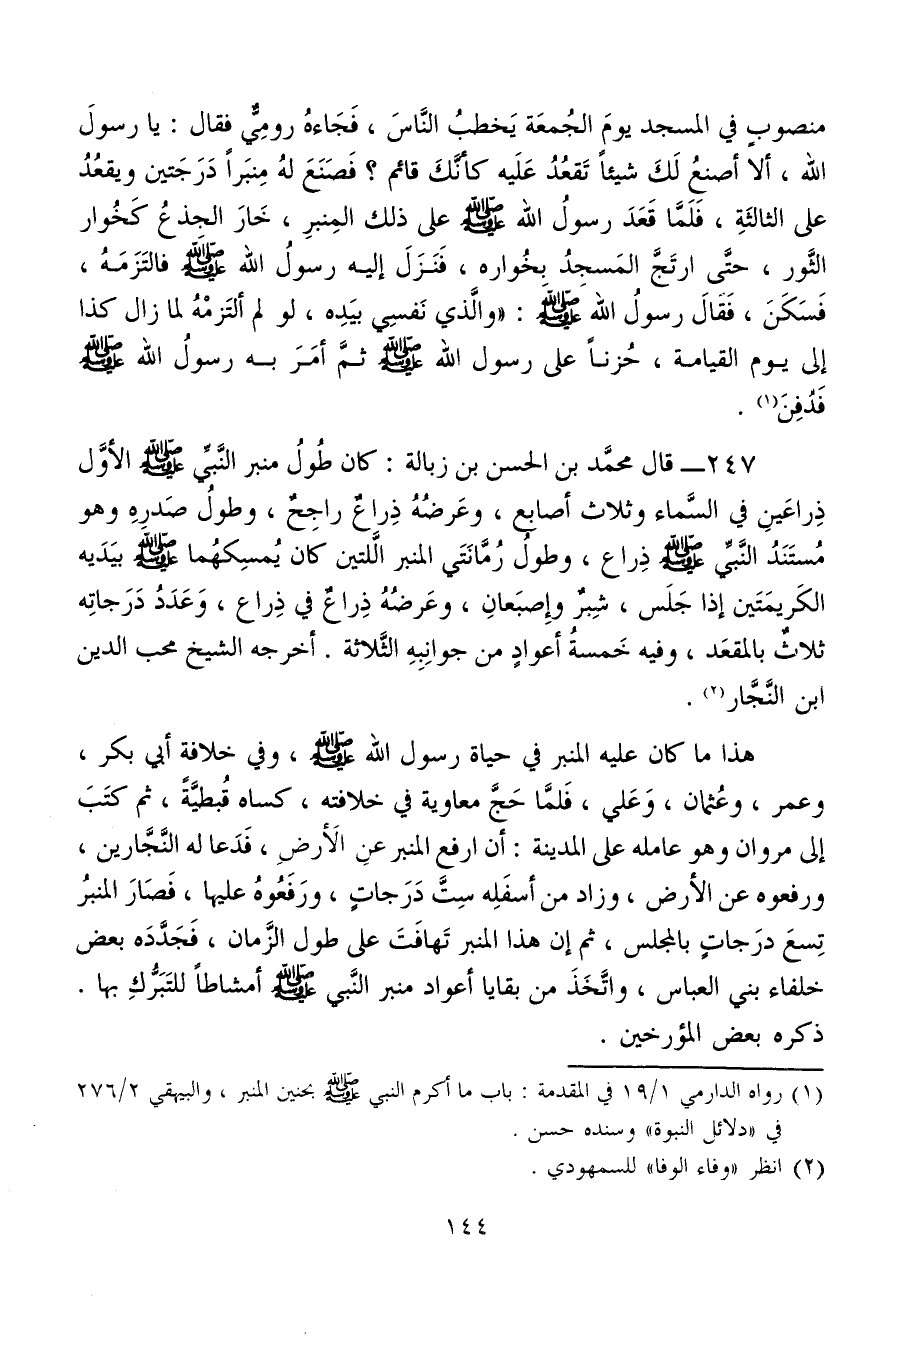 منصوبٍ في المسجد يومَ الجُمعَة يَخطبُ النَّاسَ ، فَجَاءهُ روميٌّ فقال : يا رسولَ
الله ، ألا أصنعُ لَكَ شيئاً تَقعُدُ عَلَيه كأنَّكَ قائم ؟ فَصَنَعَ لهُ مِنبَراً دَرَجَتين ويقعُدُ
على الثالثَةِ ، فَلَمَّا قَعَدَ رسولُ الله ﷺ على ذلك المِنبرِ ، خَارَ الجِذعُ كَخُوار
الثَّور ، حتَّى ارتَجَّ المَسجِدُ بِخُواره ، فَنَزَلَ إليه رسولُ الله ﷺ فالتَزَمَهُ ،
فَسَكَنَ ، فَقَالَ رسولُ الله ﷺ : «والَّذي نَفسي بيَده ، لو لم ألتَزمْهُ لما زال كذا
إلى يوم القيامة ، حُزناً على رسول الله ﷺ ثمَّ أمَرَ به رسولُ الله ﷺ
فَدُفِنَ(١) .
٢٤٧ـ قال محمَّد بن الحسن بن زبالة : كان طُولُ منبر النَّبيِّ ﷺ الأوَّل
ذِراعَينِ في السَّماء وثلاث أصابع ، وعَرضُهُ ذِراعٌ راجحٌ ، وطولُ صَدرِهِ وهو
مُستَنَدُ النَّبيِّ ﷺ ذِراع ، وطولُ رُمَّانَتَي المنبر الَّلتين كان يُمسِكِهُما ﷺ بيَدَيه
الكَريمتَين إذا جَلَس ، شِبرٌ وإصبَعانِ ، وعَرضُهُ ذِراعٌ في ذِراع ، وَعَدَدُ دَرَجاتِه
ثلاثٌ بالمقعَد ، وفيه خَمسةُ أعوادٍ من جوانِبِهِ الثَّلاثة . أخرجه الشيخ محب الدين
ابن النَّجَّار(٢) .
هذا ما كان عليه المنبر في حياة رسول الله ﷺ ، وفي خلافة أبي بكر ،
وعمر ، وعُثمان ، وَعَلي ، فَلمَّا حَجَّ معاوية في خلافته ، كساه قُبطيَّةً ، ثم كتَبَ
إلى مروان وهو عامله على المدينة : أن ارفع المنبر عنِ الَأرضِ ، فَدَعا له النَّجَّارين ،
ورفعوه عن الأرض ، وزاد من أسفَلِه سِتَّ دَرَجاتٍ ، ورَفَعُوهُ عليها ، فَصَارَ المنبرُ
تِسعَ درَجاتٍ بالمجلس ، ثم إن هذا المنبر تَهافَتَ على طول الزَّمان ، فَجَدَّدَه بعض
خلفاء بني العباس ، واتَّخَذَ من بقايا أعواد منبر النَّبي ﷺ أمشاطاً للتَبَرُّكِ بها .
ذكره بعض المؤرخين .
(١) رواه الدارمي ١٩/١ في المقدمة : باب ما أكرم النبي ﷺ بحنين المنبر ، والبيهقي ٢٧٦/٢
في «دلائل النبوة» وسنده حسن .
(٢) انظر «وفاء الوفا» للسمهودي .
١٤٤